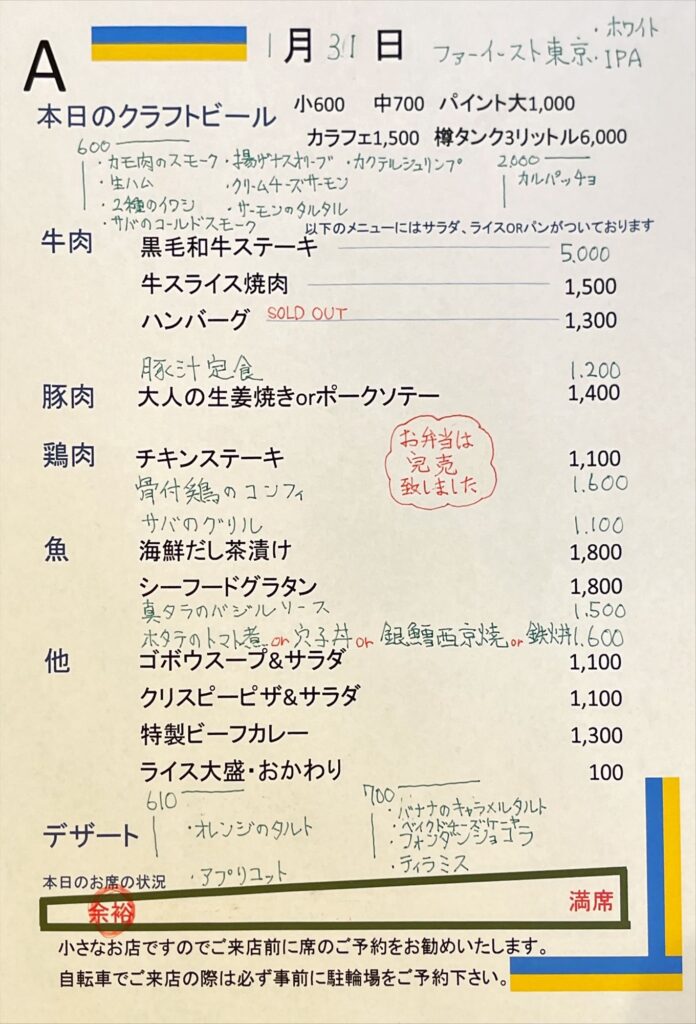 A
1月31日
・ホワイト
ファーイースト東京・IPA
本日のクラフトビール 小600 中700 パイント大1,000
カラフェ1,500 樽タンク3リットル6,000
600
・カモ肉のスモーク ・揚げナスオリーブ ・カクテルシュリンプ
・生ハム ・クリームチーズサーモン
・2種のイワシ ・サーモンのタルタル
・サバのコールドスモーク
2,000
カルパッチョ
以下のメニューにはサラダ、ライスORパンがついております
牛肉 黒毛和牛ステーキ 5,000
牛スライス焼肉 1,500
ハンバーグ SOLD OUT 1,300
豚汁定食 1.200
豚肉 大人の生姜焼きorポークソテー 1,400
お弁当は
完売
致しました
鶏肉 チキンステーキ 1,100
骨付鶏のコンフィ 1.600
サバのグリル 1.100
魚 海鮮だし茶漬け 1,800
シーフードグラタン 1,800
真タラのバジルソース 1.500
ホタテのトマト煮or穴子丼or銀鱈西京焼or 1.600
他 ゴボウスープ&サラダ 1,100
クリスピーピザ&サラダ 1,100
特製ビーフカレー 1,300
ライス大盛・おかわり 100
デザート
610
・オレンジのタルト
・アプリコット
700
・バナナのキャラメルタルト
・ベイクドチーズケーキ
・フォンダンショコラ
・ティラミス
本日のお席の状況
余裕 満席
小さなお店ですのでご来店前に席のご予約をお勧めいたします。
自転車でご来店の際は必ず事前に駐輪場をご予約下さい。